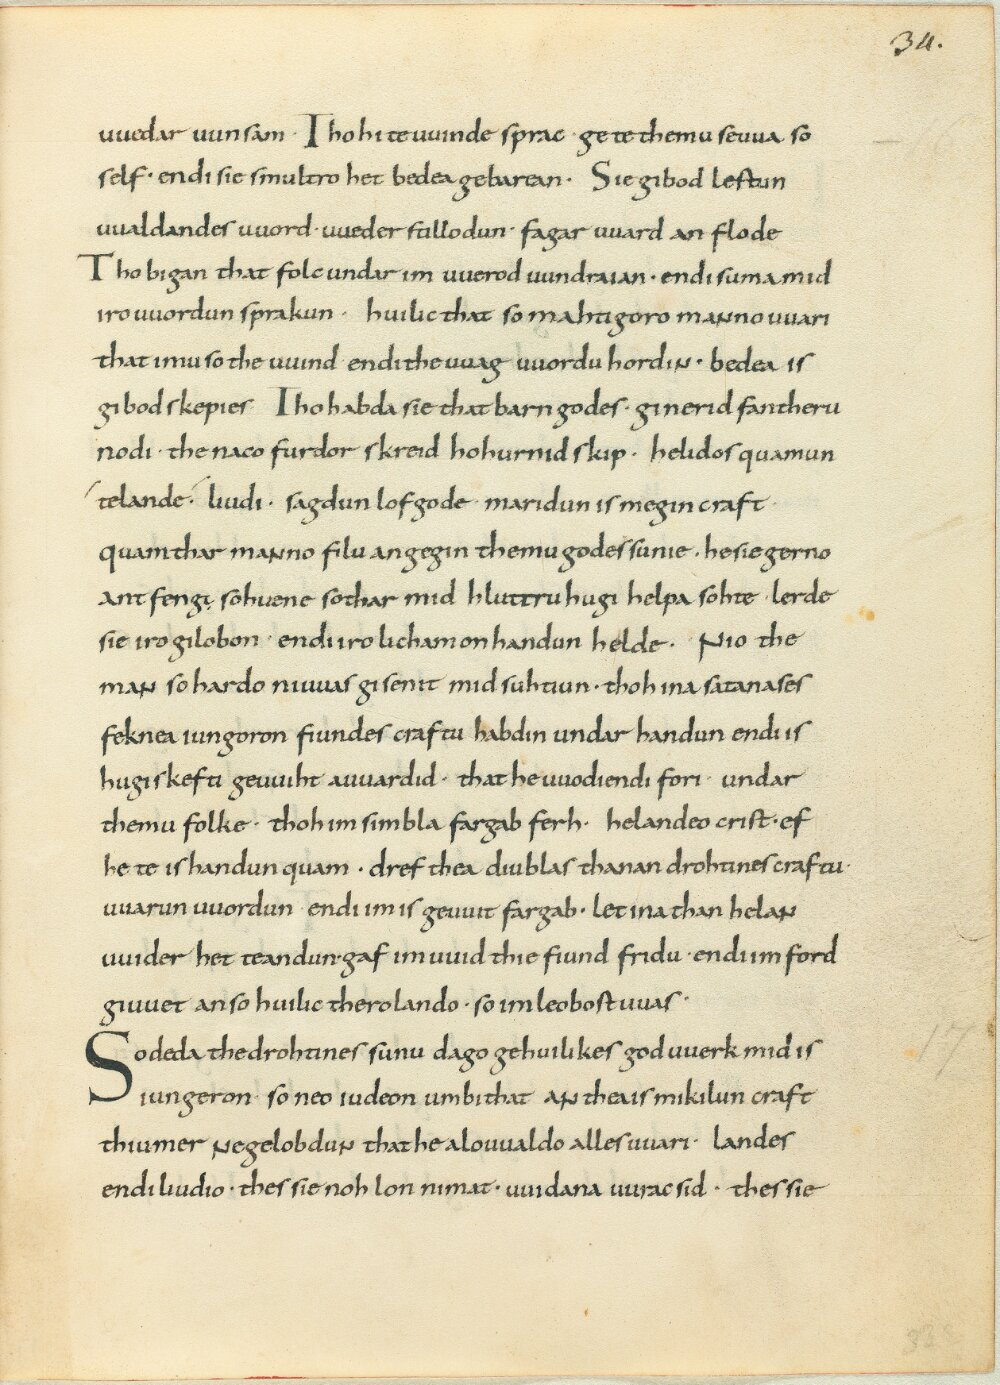 34.
uuedar uunsam · Tho hi te uuinde sprac · ge te themu seuua so
self · endi sie smultro het bedea gebarean · Sie gibod lestun
uualdandes uuord · uueder stillodun · fagar uuard an flode
Tho bigan that folc undar im uuerod uundraian · endi suma mid
iro uuordun sprakun · huilic that so mahtigoro manno uuari
that imu so the uuind endi the uuag uuordu hordin · bedea is
gibodskepies Tho habda sie that barn godes · ginerid fan theru
nodi · the naco furdor skreid hohurnid skip · helidos quamun
te lande · liudi · sagdun lof gode maridun is megincraft ·
quam thar manno filu angegin themu godes sunie · he sie gerno
antfengi · so huene so thar mid hluttru hugi helpa sohte · lerde
sie iro gilobon · endi iro lichamon handun helde · Nio the
man so hardo ni uuas gisenit mid suhtiun · thoh ina satanases
feknea iungoron fiundes craftu habdin undar handun endi is
hugiskefti geuuiht auuardid · that he uuodiendi fori · undar
themu folke · thoh im simbla fargab ferh · helandeo crist · ef
he te is handun quam · dref thea diublas thanan drohtines craftu ·
uuarun uuordun · endi im is geuuit fargab · let ina than helan
uuider hetteandun · gaf im uuid thie fiund fridu · endi im ford
giuuet an so huilic thero lando · so im leobost uuas ·
So deda the drohtines sunu dago gehuilikes god uuerk mid is
iungeron · so neo iudeon umbi that an thea is mikilun craft
thiu mer ne gelobdun that he alouualdo alles uuari · landes
endi liudio · thes sie noh lon nimat · uuidana uuracsid · thes sie
17